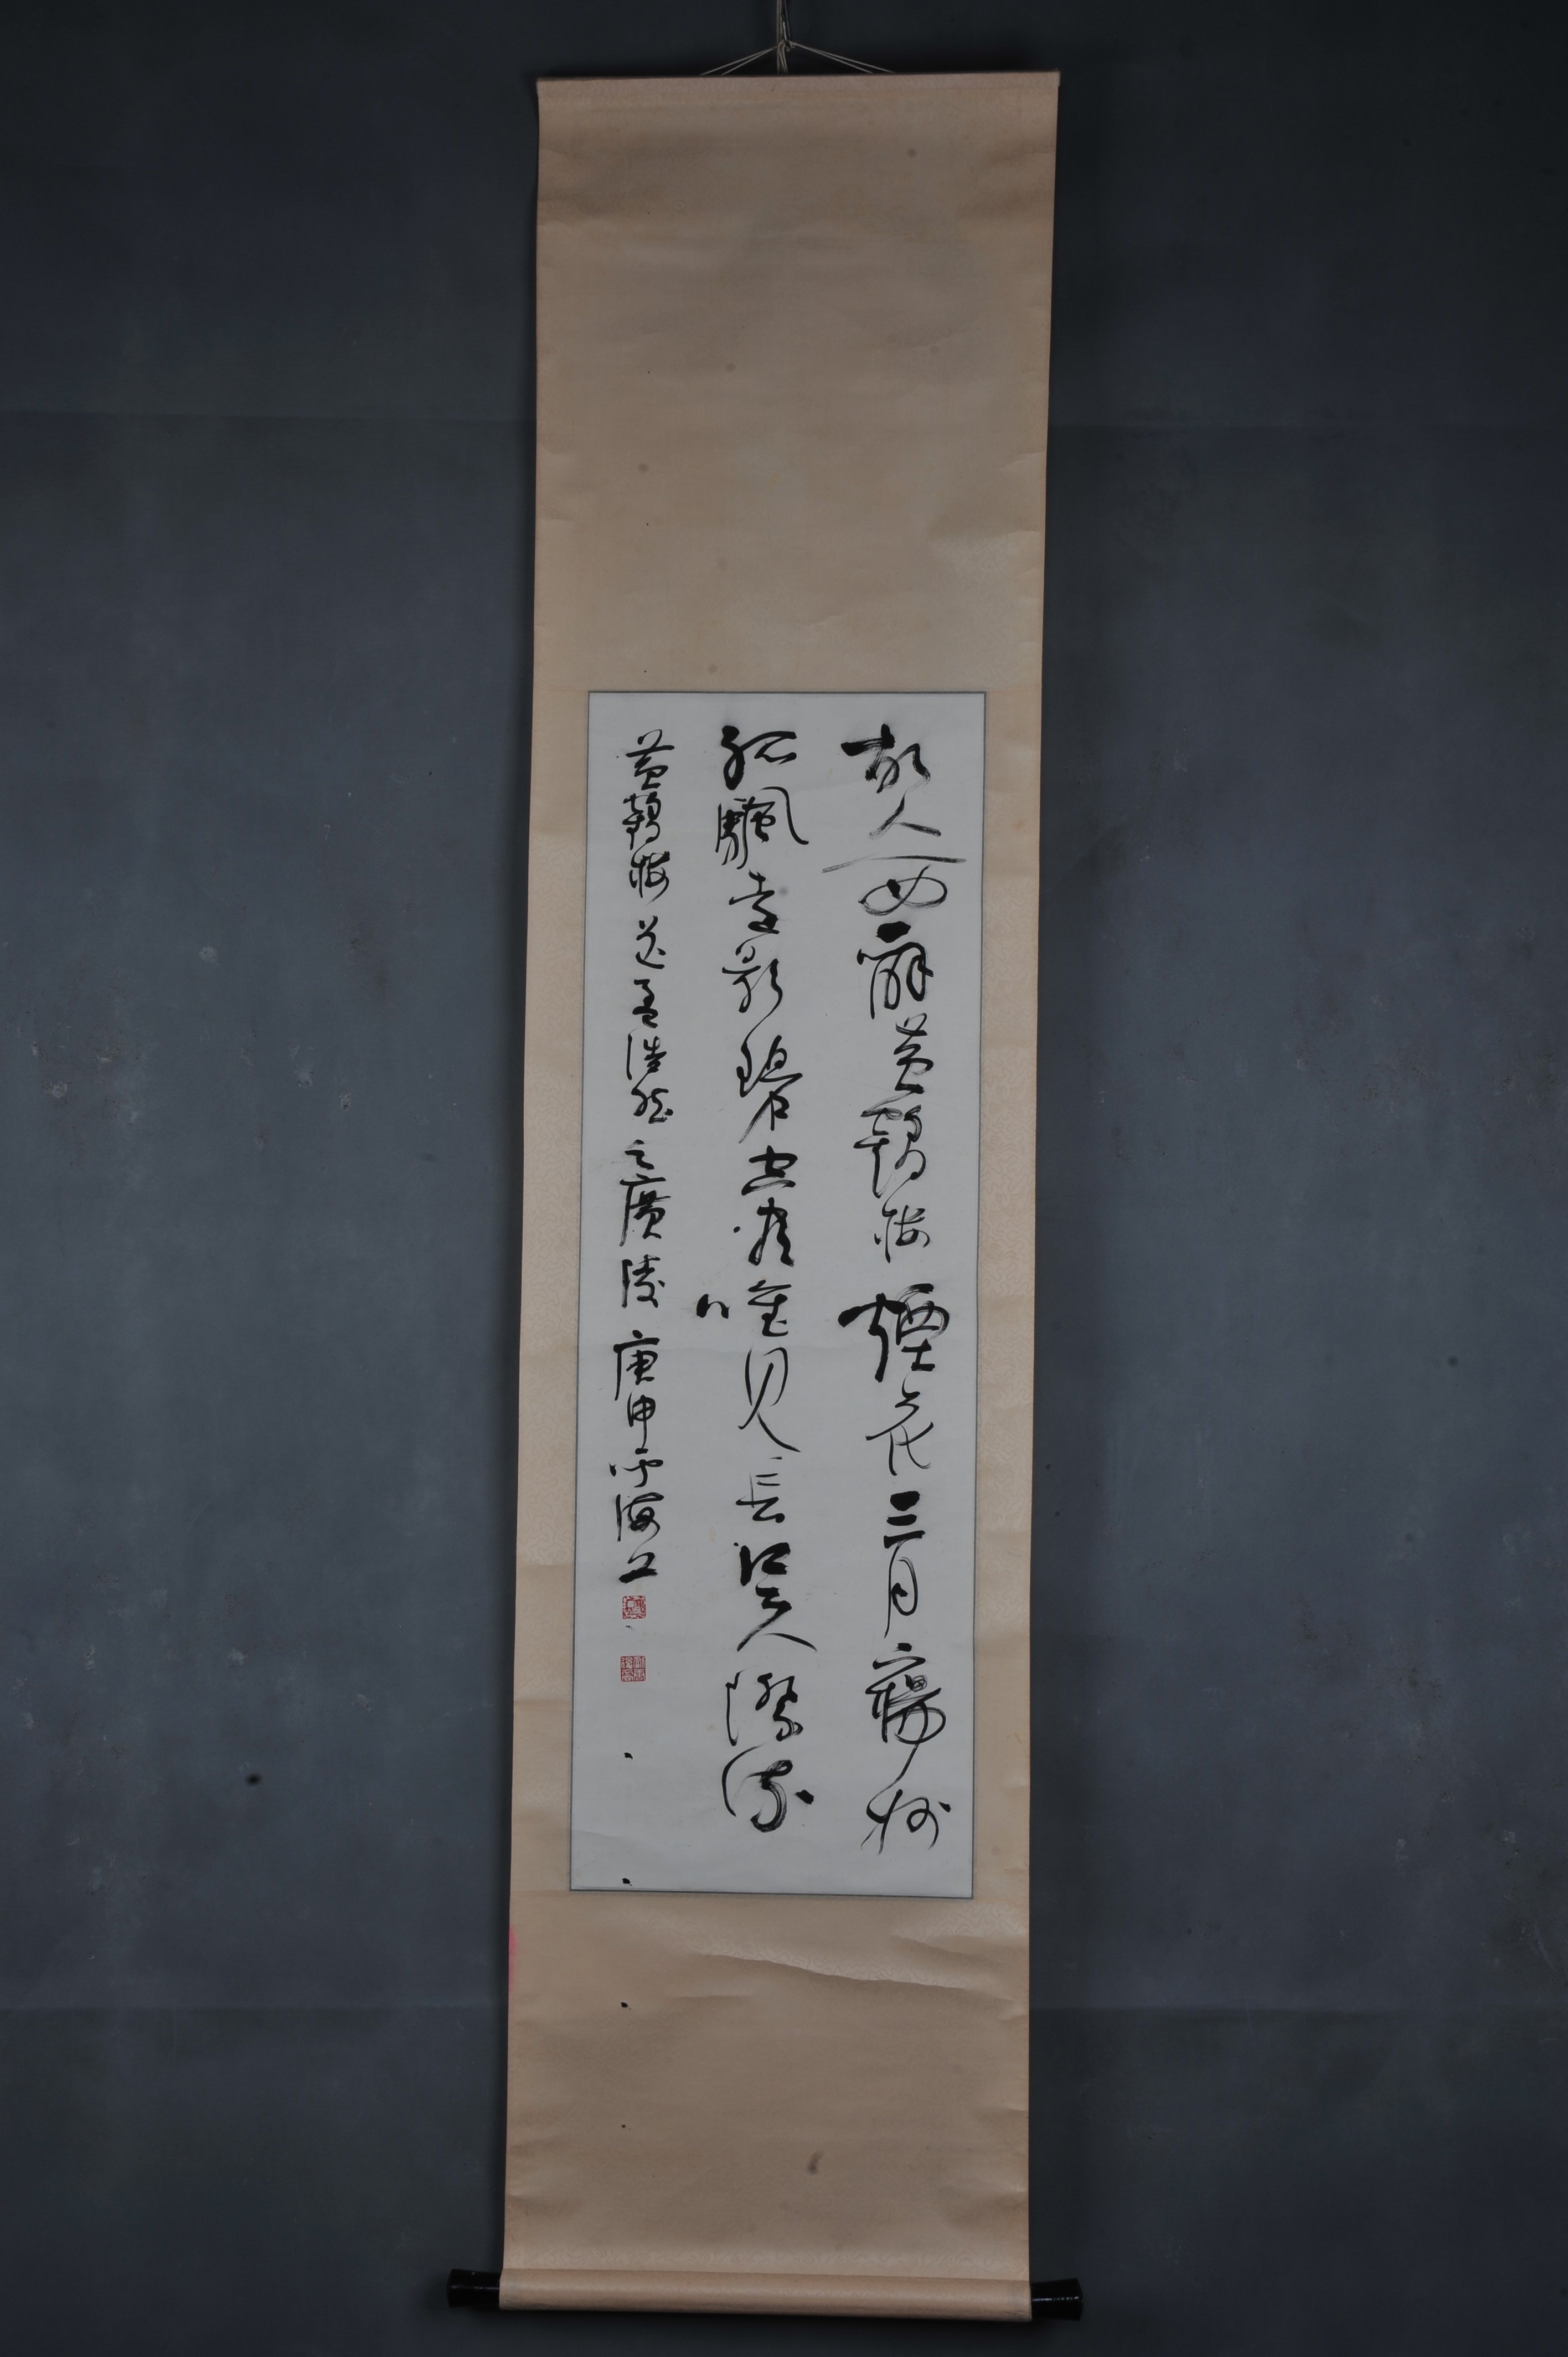 故人西辭黃鶴樓煙花三月下揚州
孤颿遠影碧空盡唯見長江天際流
黃鶴樓送孟浩然之廣陵 庚申